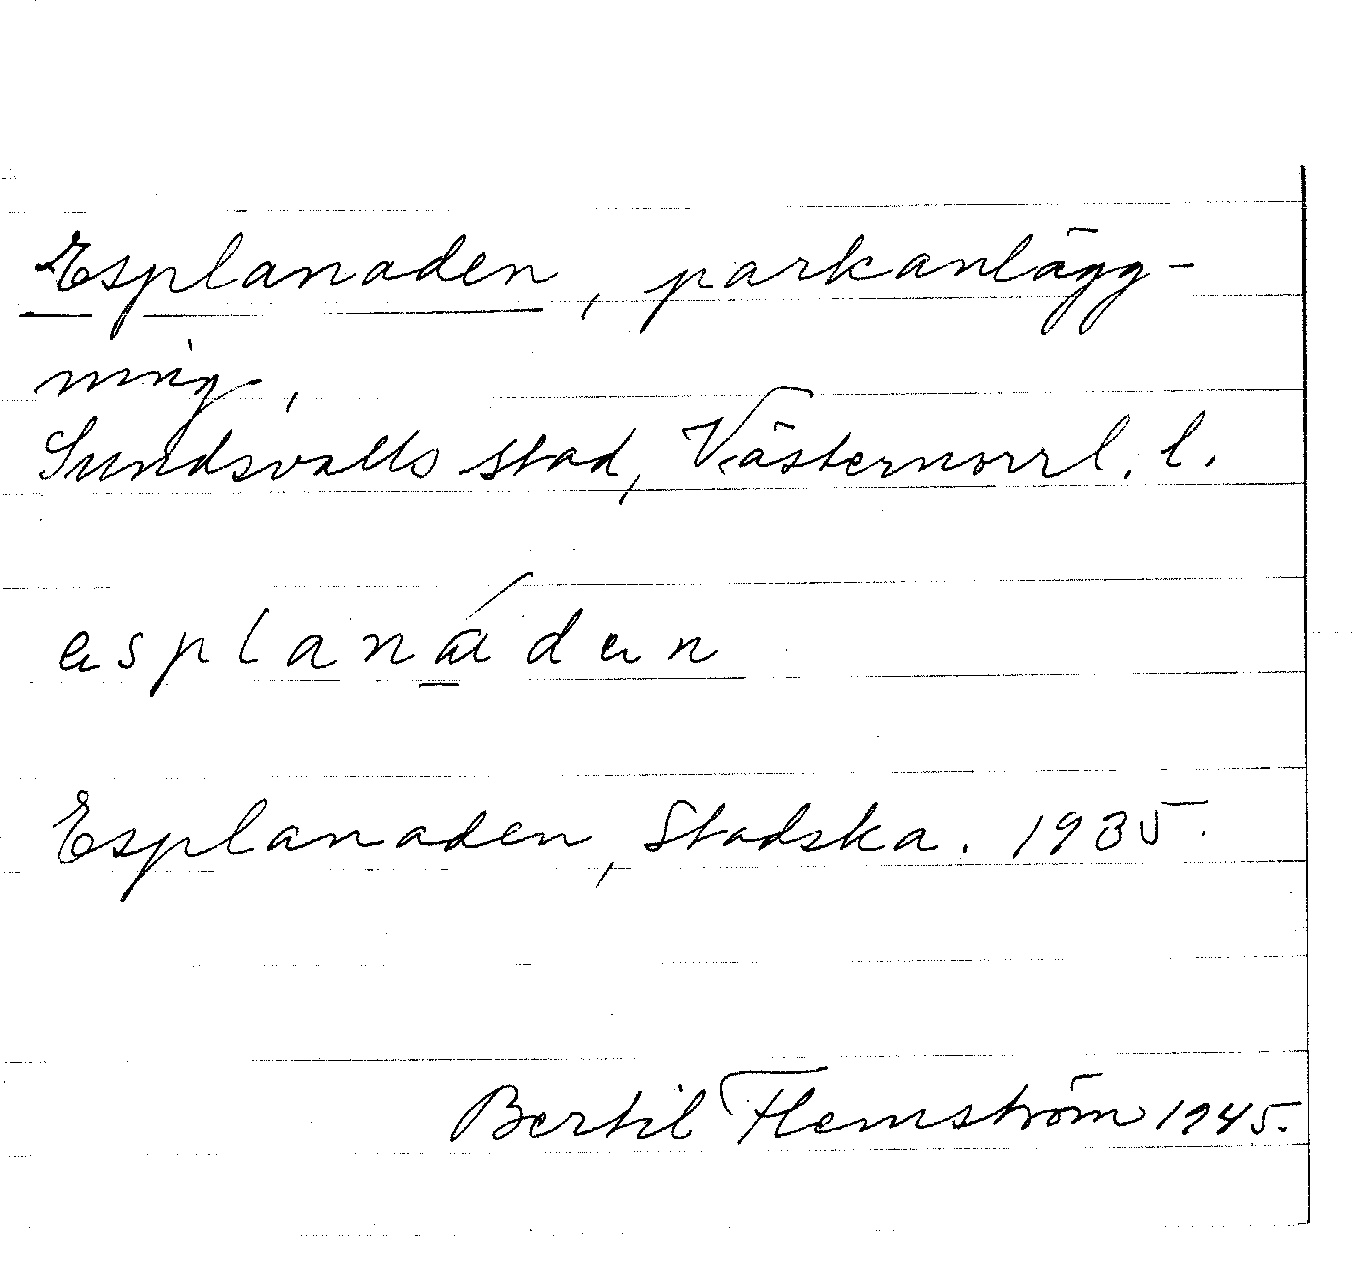 Esplanaden, parkanlägg-
ning,
Sundsvalls stad, Västernorrl. l.
esplanáden
Esplanaden, Stadska. 1935.
Bertil Flemström 1945.